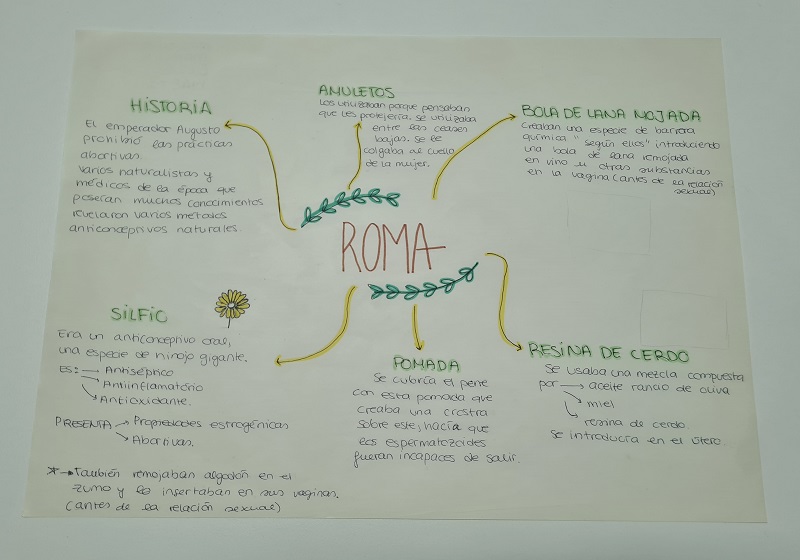 HISTORIA
El emperador Augusto
prohibió las prácticas
abortivas.
Varios naturalistas y
médicos de la época que
poseían muchos conocimientos
revelaron varios métodos
anticonceptivos naturales.
AMULETOS
Los utilizaban porque pensaban
que les protejería. Se utilizaba
entre las clases
bajas. Se le
colgaba al cuello
de la mujer.
BOLA DE LANA MOJADA
Creaban una especie de barrera
química "según ellos" introduciendo
una bola de lana remojada
en vino u otras substancias
en la vagina (antes de la relación
sexual)
ROMA
SILFIO
Era un anticonceptivo oral,
una especie de hinojo gigante.
ES: Antiséptico
Antiinflamatório
Antioxidante.
PRESENTA Propiedades estrogénicas
Abortivas.
* También remojaban algodón en el
zumo y lo insertaban en sus vaginas.
(antes de la relación sexual)
POMADA
Se cubría el pene
con esta pomada que
creaba una crostra
sobre este, hacía que
los espermatozoides
fueran incapaces de salir.
RESINA DE CERDO
Se usaba una mezcla compuesta
por aceite rancio de oliva
miel
resina de cerdo.
Se introducía en el útero.